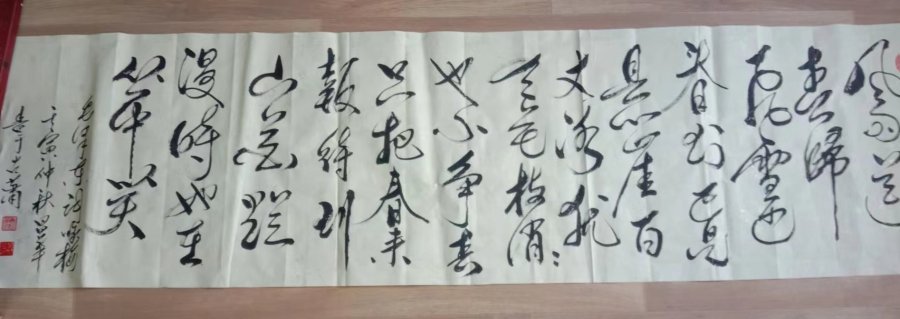 风雨送
春歸
飞雪迎
春到已是
悬崖百
丈冰犹
有花枝俏〻
也不争春
只把春来
報待到
山花烂
漫時她在
丛中笑
毛泽东词咏梅
壬寅仲秋昌平